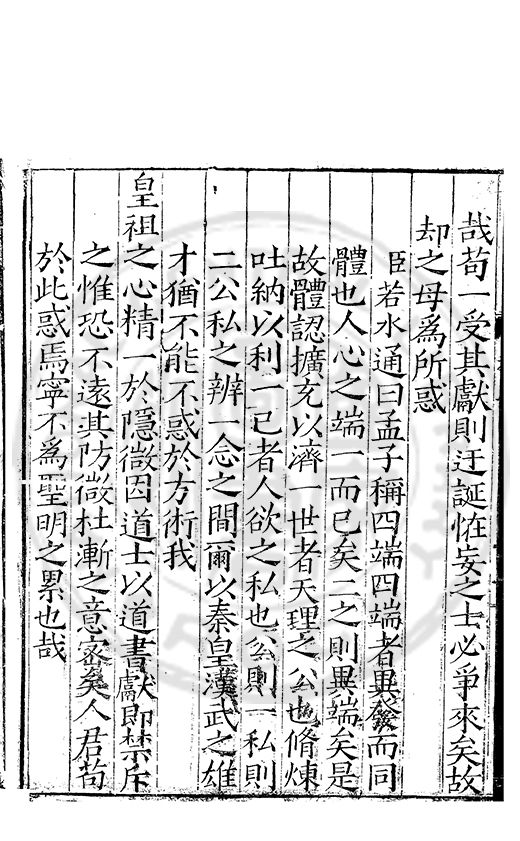 哉苟一受其獻則迂誕恠妄之士必爭來矣故
却之毋爲所惑
臣若水通曰孟子稱四端四端者異發而同
體也人心之端一而已矣二之則異端矣是
故體認擴充以濟一世者天理之公也脩煉
吐納以利一己者人欲之私也公則一私則
二公私之辨一念之間爾以秦皇漢武之雄
才猶不能不惑於方術我
皇祖之心精一於隱微因道士以道書獻即禁斥
之惟恐不遠其防微杜漸之意密矣人君苟
於此惑焉寧不爲聖明之累也哉